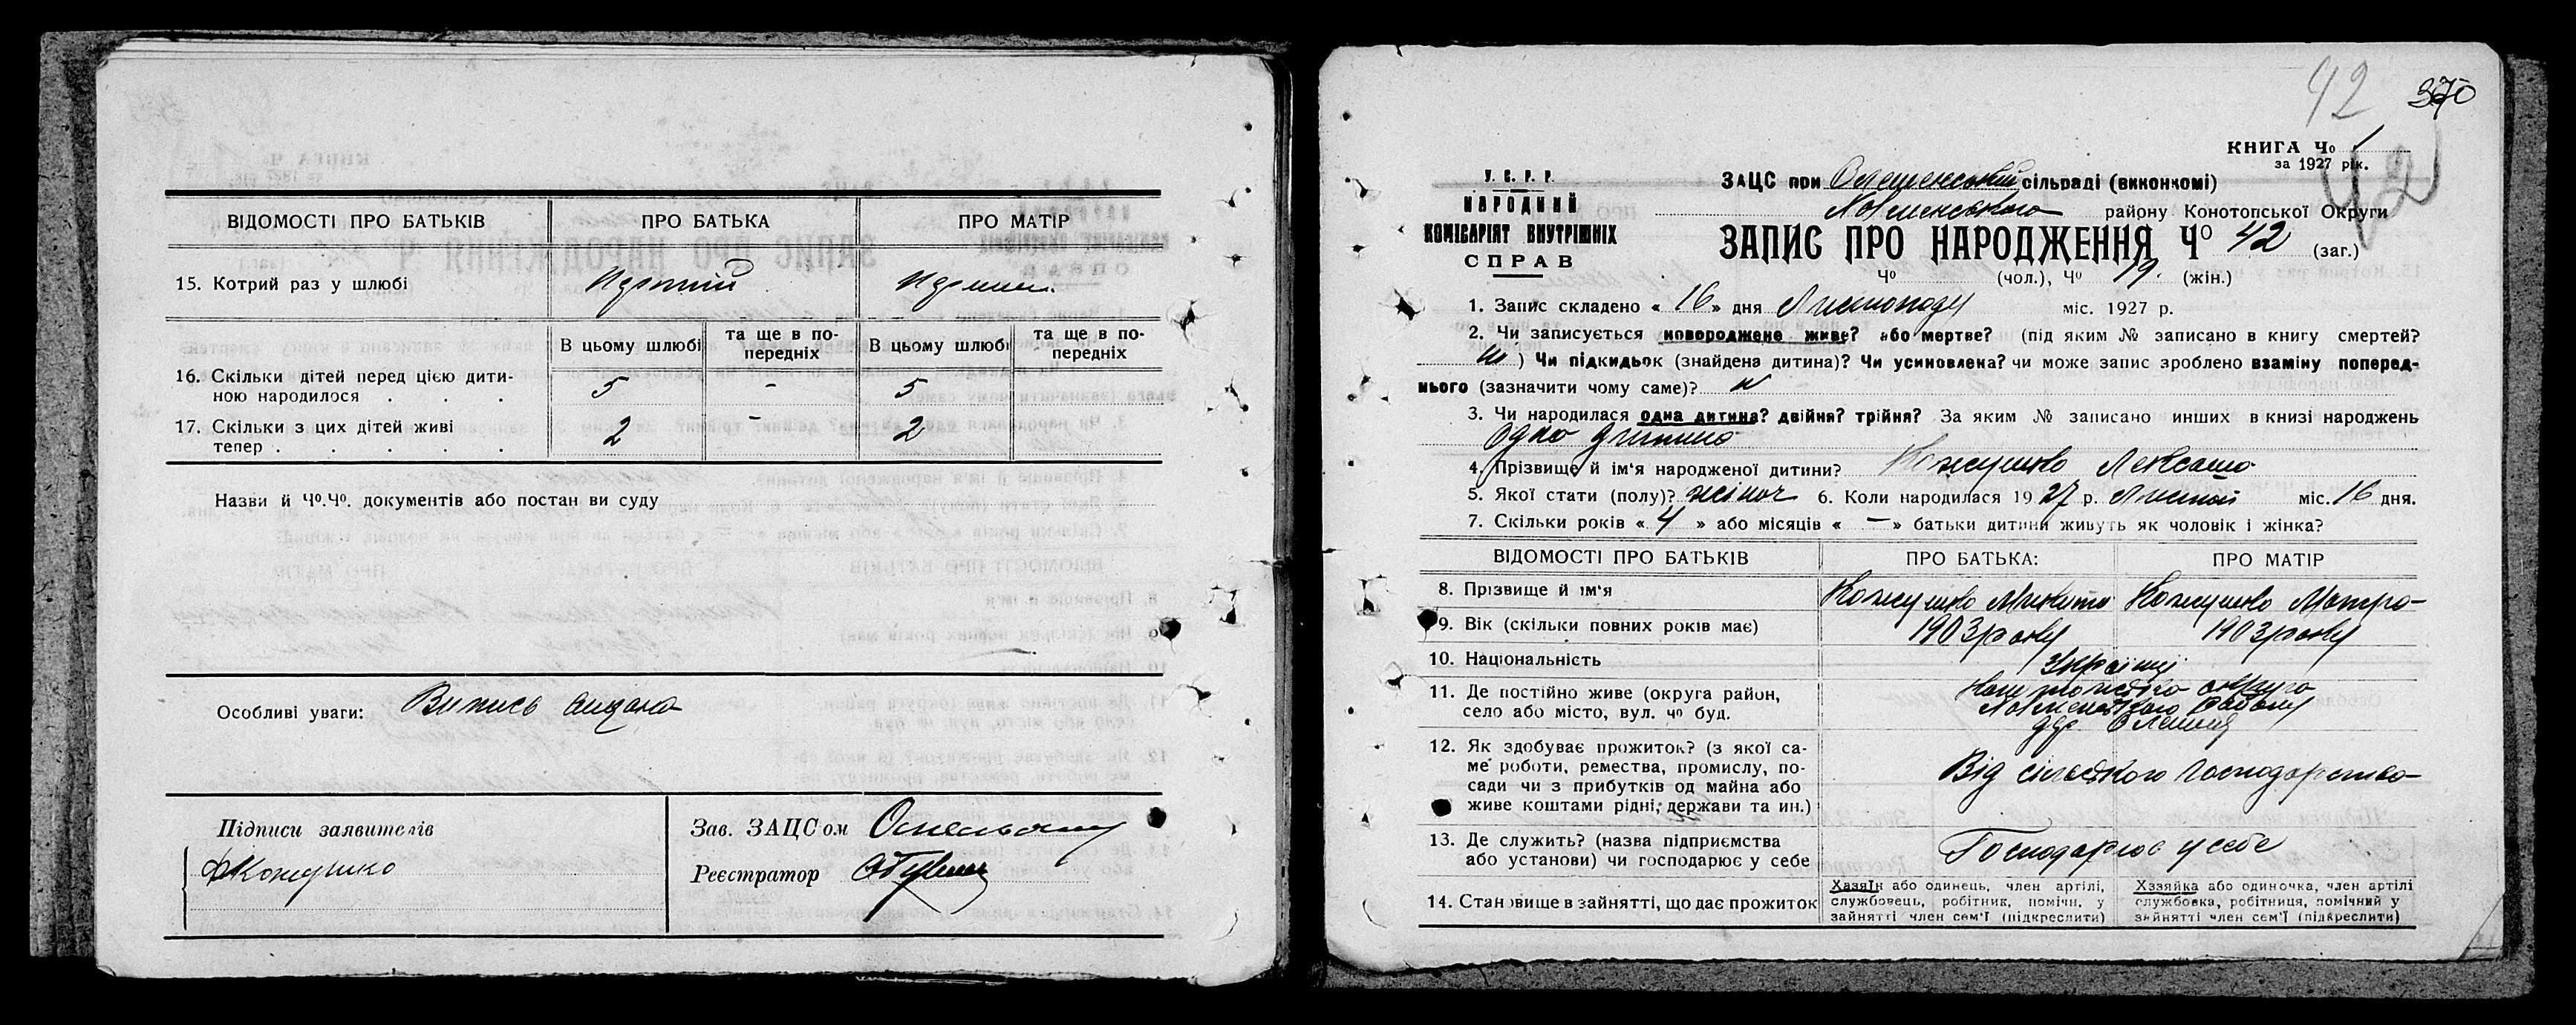 ВІДОМОСТІ ПРО БАТЬКІВ ПРО БАТЬКА ПРО МАТІР
15. Котрий раз у шлюбі
В цьому шлюбі та ще в по-передніх В цьому шлюбі та ще в по-передніх
16. Скільки дітей перед цією дити-
ною народилося . . . 5 - 5
17. Скільки з цих дітей живі
тепер . . . . . 2 - 2
Назви й Чо.Чо. документів або постан ви суду
Особливі уваги: Випись видана
Підписи заявителів
Кожушко
Зав. ЗАЦСом
Реєстратор
42 370
КНИГА Чо 1
за 1927 рік.
42
У. С. Р. Р.
НАРОДНИЙ
КОМІСАРІЯТ ВНУТРІШНІХ
СПРАВ
ЗАЦС при Олешенській сільраді (виконкомі)
району Конотопської Округи
ЗАПИС ПРО НАРОДЖЕННЯ Чо 42 (заг.)
Чо (чол.), Чо 19. (жін.)
1. Запис складено « 16 » дня Листопаду міс. 1927 р.
2. Чи записується новороджене живе? або мертве? (під яким № записано в книгу смертей?
) Чи підкидьок (знайдена дитина)? Чи усиновлена? чи може запис зроблено взаміну поперед-
нього (зазначити чому саме)?
3. Чи народилася одна дитина? двійня? трійня? За яким № записано инших в книзі народжень
одна дитина
4. Прізвище й ім'я народженої дитини? Кожушко Лексаша
5. Якої стати (полу)? жіноч 6. Коли народилася 1927 р. Листоп міс. 16 дня.
7. Скільки років « 4 » або місяців « — » батьки дитини живуть як чоловік і жінка?
ВІДОМОСТІ ПРО БАТЬКІВ ПРО БАТЬКА: ПРО МАТІР
8. Прізвище й ім'я Кожушко Микита Кожушко Мотря
9. Вік (скільки повних років має) 1903 року 1903 року
10. Національність Українці
11. Де постійно живе (округа район,
село або місто, вул. чо буд. округа
району
12. Як здобуває прожиток? (з якої са-
ме роботи, ремества, промислу, по-
сади чи з прибутків од майна або
живе коштами рідні, держави та ин.) Від сільського господарства
13. Де служить? (назва підприємства
або установи) чи господарює у себе Господарює у себе
14. Становище в зайнятті, що дає прожиток
Хазяїн або одинець, член артілі,
службовець, робітник, помічн. у
зайнятті член сем'ї (підкреслити)
Хазяйка або одиночка, член артілі
службовка, робітниця, помічний у
зайнятті член сем'ї (підкреслити)